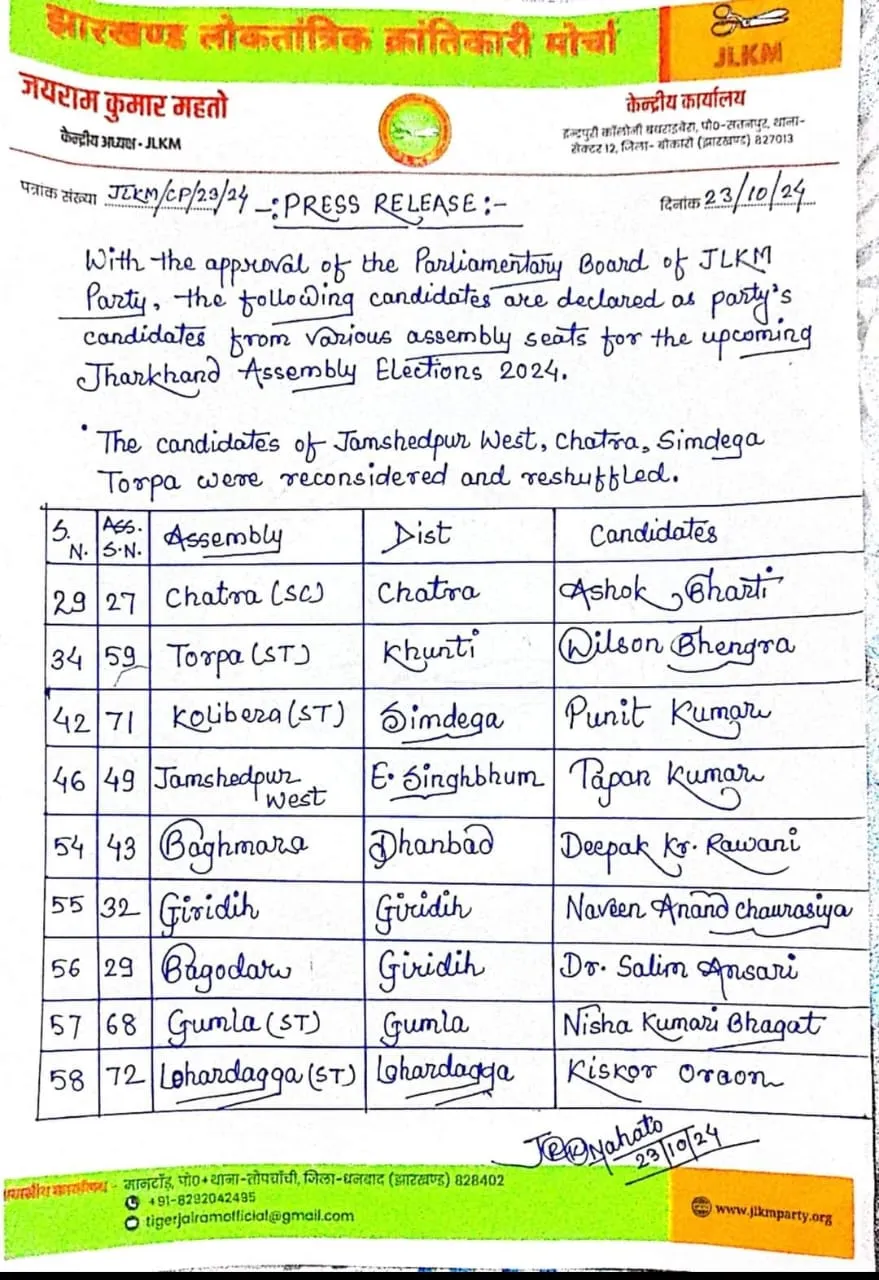 झारखण्ड लोकतांत्रिक क्रांतिकारी मोर्चा
JLKM
जयराम कुमार महतो
केन्द्रीय अध्यक्ष - JLKM
केन्द्रीय कार्यालय
इन्द्रपुरी कॉलोनी पो0-सतनपुर, थाना-
सेक्टर 12, जिला- बोकारो (झारखण्ड) 827013
पत्रांक संख्या JLKM/CP/23/24 -:PRESS RELEASE:- दिनांक 23/10/24
With the approval of the Parliamentary Board of JLKM
Party, the following candidates are declared as party's
candidates from various assembly seats for the upcoming
Jharkhand Assembly Elections 2024.
The candidates of Jamshedpur West, Chatra, Simdega
Torpa were reconsidered and reshuffled.
S.N. Ass. S.N. Assembly Dist Candidates
29 27 Chatra (SC) Chatra Ashok Bharti
34 59 Torpa (ST) Khunti Wilson Bhengra
42 71 Kolibera (ST) Simdega Punit Kumar
46 49 Jamshedpur West E. Singhbhum Tapan Kumar
54 43 Baghmara Dhanbad Deepak Kr. Rawani
55 32 Giridih Giridih Naveen Anand Chaurasiya
56 29 Bagodar Giridih Dr. Salim Ansari
57 68 Gumla (ST) Gumla Nisha Kumari Bhagat
58 72 Lohardagga (ST) Lohardagga Kiskor Oraon
Mahato
23/10/24
मानटाँड़, पो0+थाना-तोपचाँची, जिला-धनबाद (झारखण्ड) 828402
+91-8292042495
tigerjairamofficial@gmail.com
www.jlkmparty.org